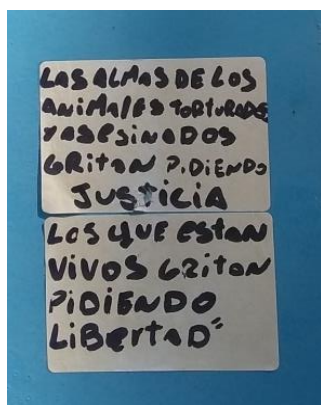 LAS ALMAS DE LOS
ANIMALES TORTURADOS
Y ASESINADOS
GRITAN PIDIENDO
JUSTICIA
LOS QUE ESTAN
VIVOS GRITAN
PIDIENDO
LIBERTAD"